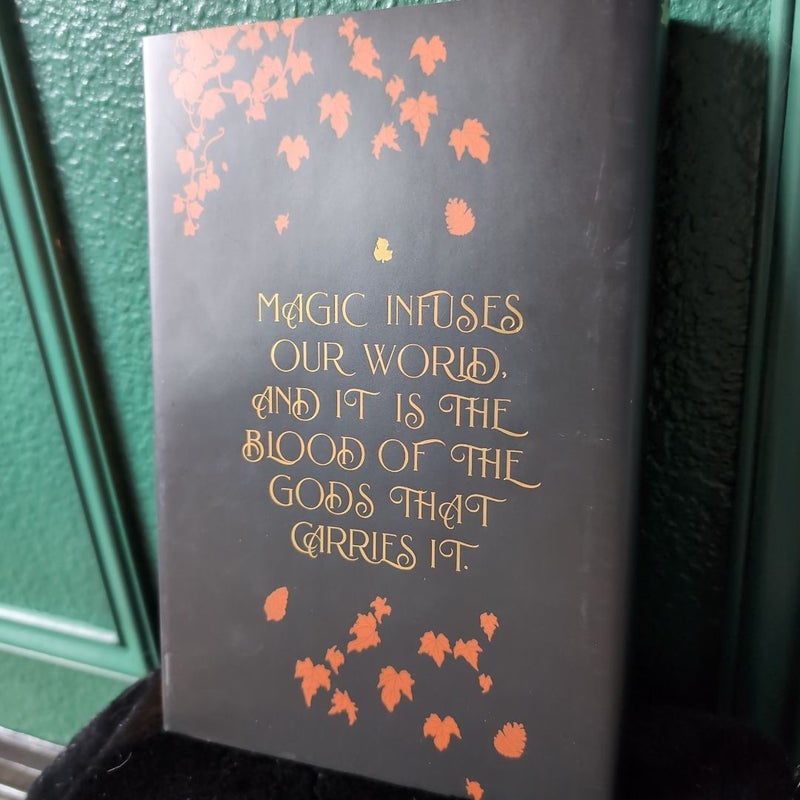 MAGIC INFUSES
OUR WORLD,
AND IT IS THE
BLOOD OF THE
GODS THAT
CARRIES IT.